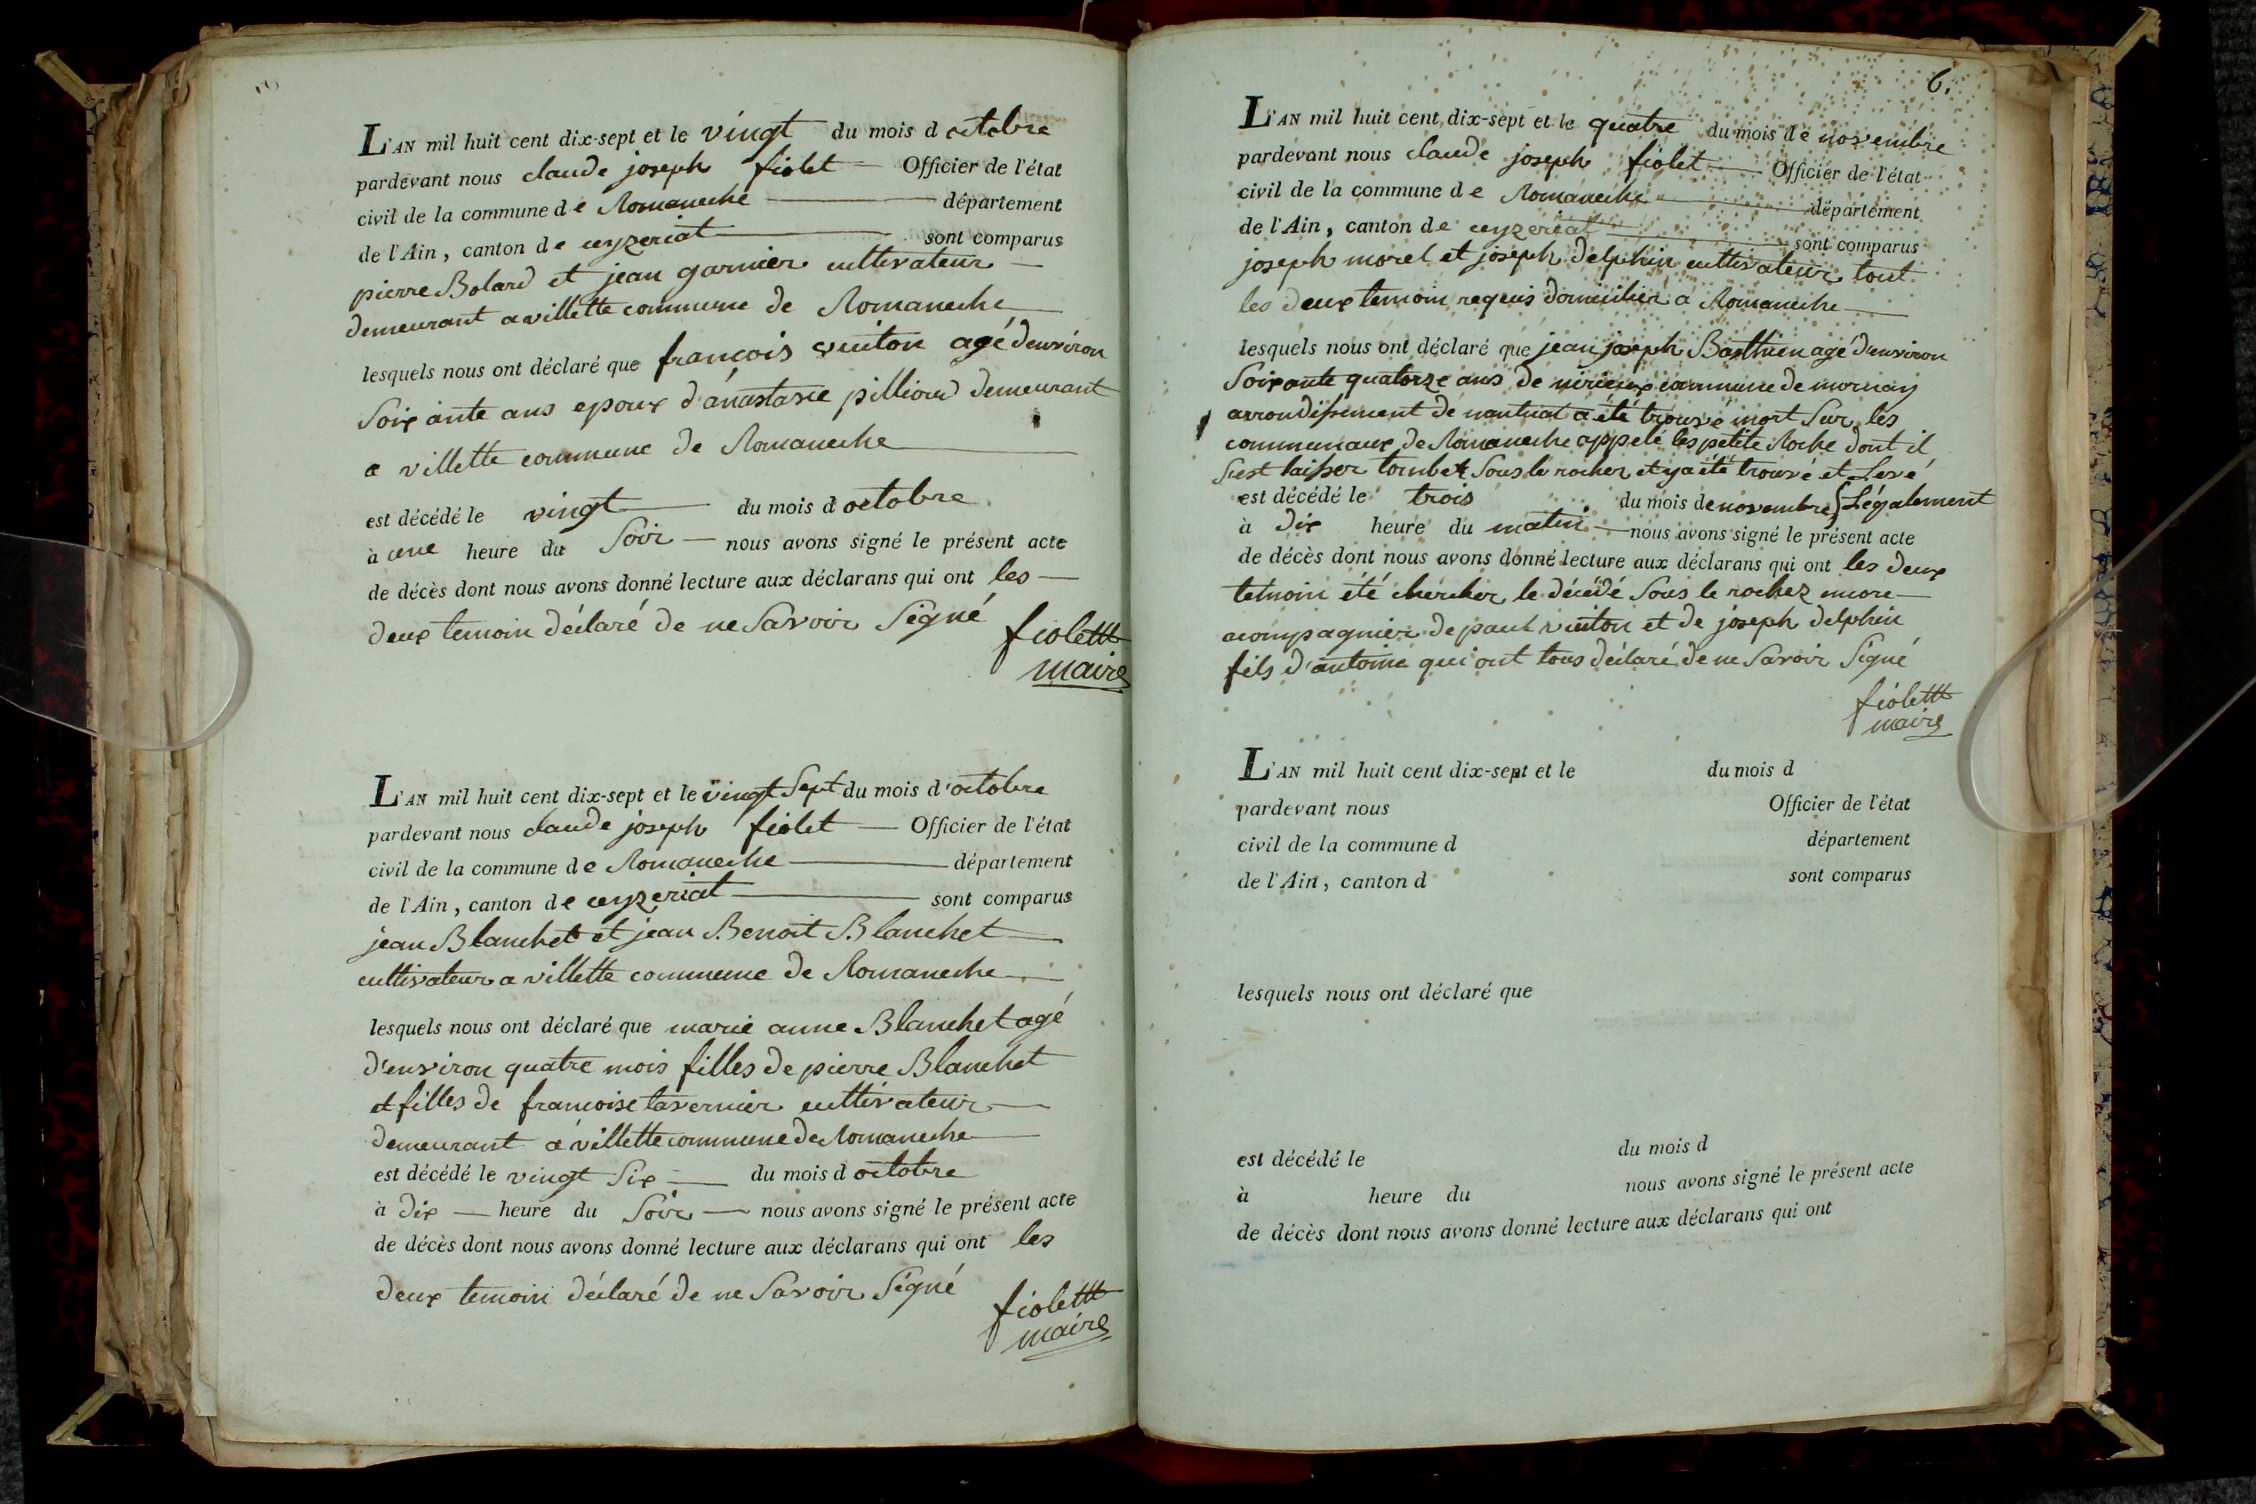 L'AN mil huit cent dix-sept et le vingt du mois d octobre
pardevant nous claude joseph fiolet Officier de l'état
civil de la commune de Romaneche département
de l'Ain, canton de ceyzeriat sont comparus
pierre Bolard et jean garnier cultivateur
demeurant a villette commune de Romaneche
lesquels nous ont déclaré que françois vuiton agé d'environ
Soixante ans epoux d'anastasie pilliou demeurant
a villette commune de Romaneche
est décédé le vingt du mois d octobre
à une heure du Soir nous avons signé le présent acte
de décès dont nous avons donné lecture aux déclarans qui ont les
deux temoin déclaré de ne Savoir Signé
fiolettt
maire
L'AN mil huit cent dix-sept et le vingt Sept du mois d'octobre
pardevant nous claude joseph fiolet Officier de l'état
civil de la commune de Romaneche département
de l'Ain, canton de ceyzeriat sont comparus
jean Blanchet et jean Benoit Blanchet
cultivateur a villette commune de Romaneche
lesquels nous ont déclaré que marie anne Blanchet agé
d'environ quatre mois filles de pierre Blanchet
et filles de francoise tavernier cultivateur
demeurant a villette commune de Romaneche
est décédé le vingt Six du mois d octobre
à dix heure du Soir nous avons signé le présent acte
de décès dont nous avons donné lecture aux déclarans qui ont les
deux temoin déclaré de ne Savoir Signé
fiolettt
maire
6.
L'AN mil huit cent dix-sept et le quatre du mois de novembre
pardevant nous claude joseph fiolet Officier de l'état
civil de la commune de Romaneche département
de l'Ain, canton de ceyzeriat sont comparus
joseph morel et joseph delphin cultivateur tout
les deux temoin requis domicilier a Romaneche
lesquels nous ont déclaré que jean joseph agé d'environ
Soixante quatorze ans de commune de mornay
arrondissement de nantuat a été trouvé mort Sur les
communaux de Romaneche appelé les petite Roche dont il
S'est laisser tomber Sous le rocher et y a été trouvé et Levé
est décédé le trois du mois de novembre Légalement
à dix heure du matin nous avons signé le présent acte
de décès dont nous avons donné lecture aux déclarans qui ont les deux
temoin été chercher le décédé Sous le rochez encore
acompagnier de paul vuiton et de joseph delphin
fils d'antoine qui ont tous déclaré de ne Savoir Signé
fiolettt
maire
L'AN mil huit cent dix-sept et le du mois d
pardevant nous Officier de l'état
civil de la commune d département
de l'Ain, canton d sont comparus
lesquels nous ont déclaré que
est décédé le du mois d
à heure du nous avons signé le présent acte
de décès dont nous avons donné lecture aux déclarans qui ont